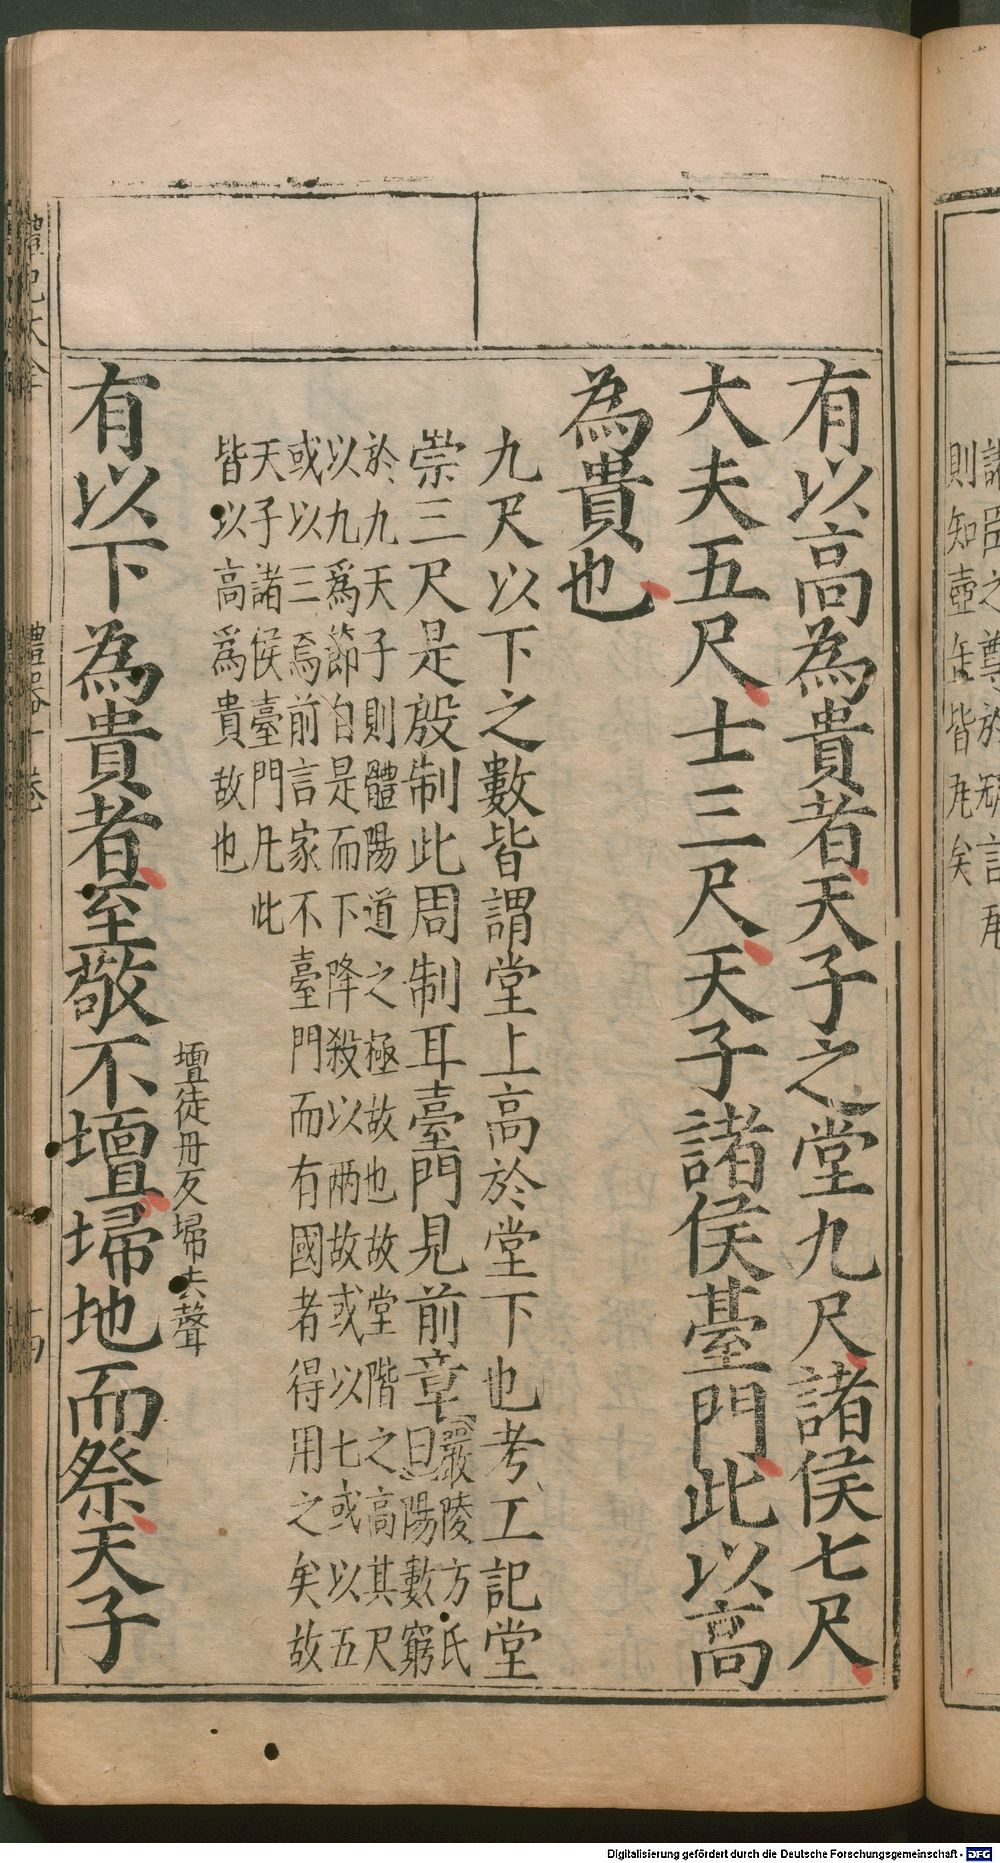 諸臣之尊於
則知壺缶皆
有以高為貴者天子之堂九尺諸侯七尺
大夫五尺士三尺天子諸侯臺門此以高
為貴也
九尺以下之數皆謂堂上高於堂下也考工記堂
崇三尺是殷制此周制耳臺門見前章
嚴陵方氏
曰陽數窮
於九天子則體陽道之極故也故堂階之高其尺
以九爲節自是而下降殺以兩故或以七或以五
或以三焉前言家不臺門而有國者得用之矣故
天子諸侯臺門凡此
皆以高爲貴故也
壇徒丹反埽去聲
有以下為貴者至敬不壇埽地而祭天子
禮記大全
禮器十卷
Digitalisierung gefördert durch die Deutsche Forschungsgemeinschaft - DFG